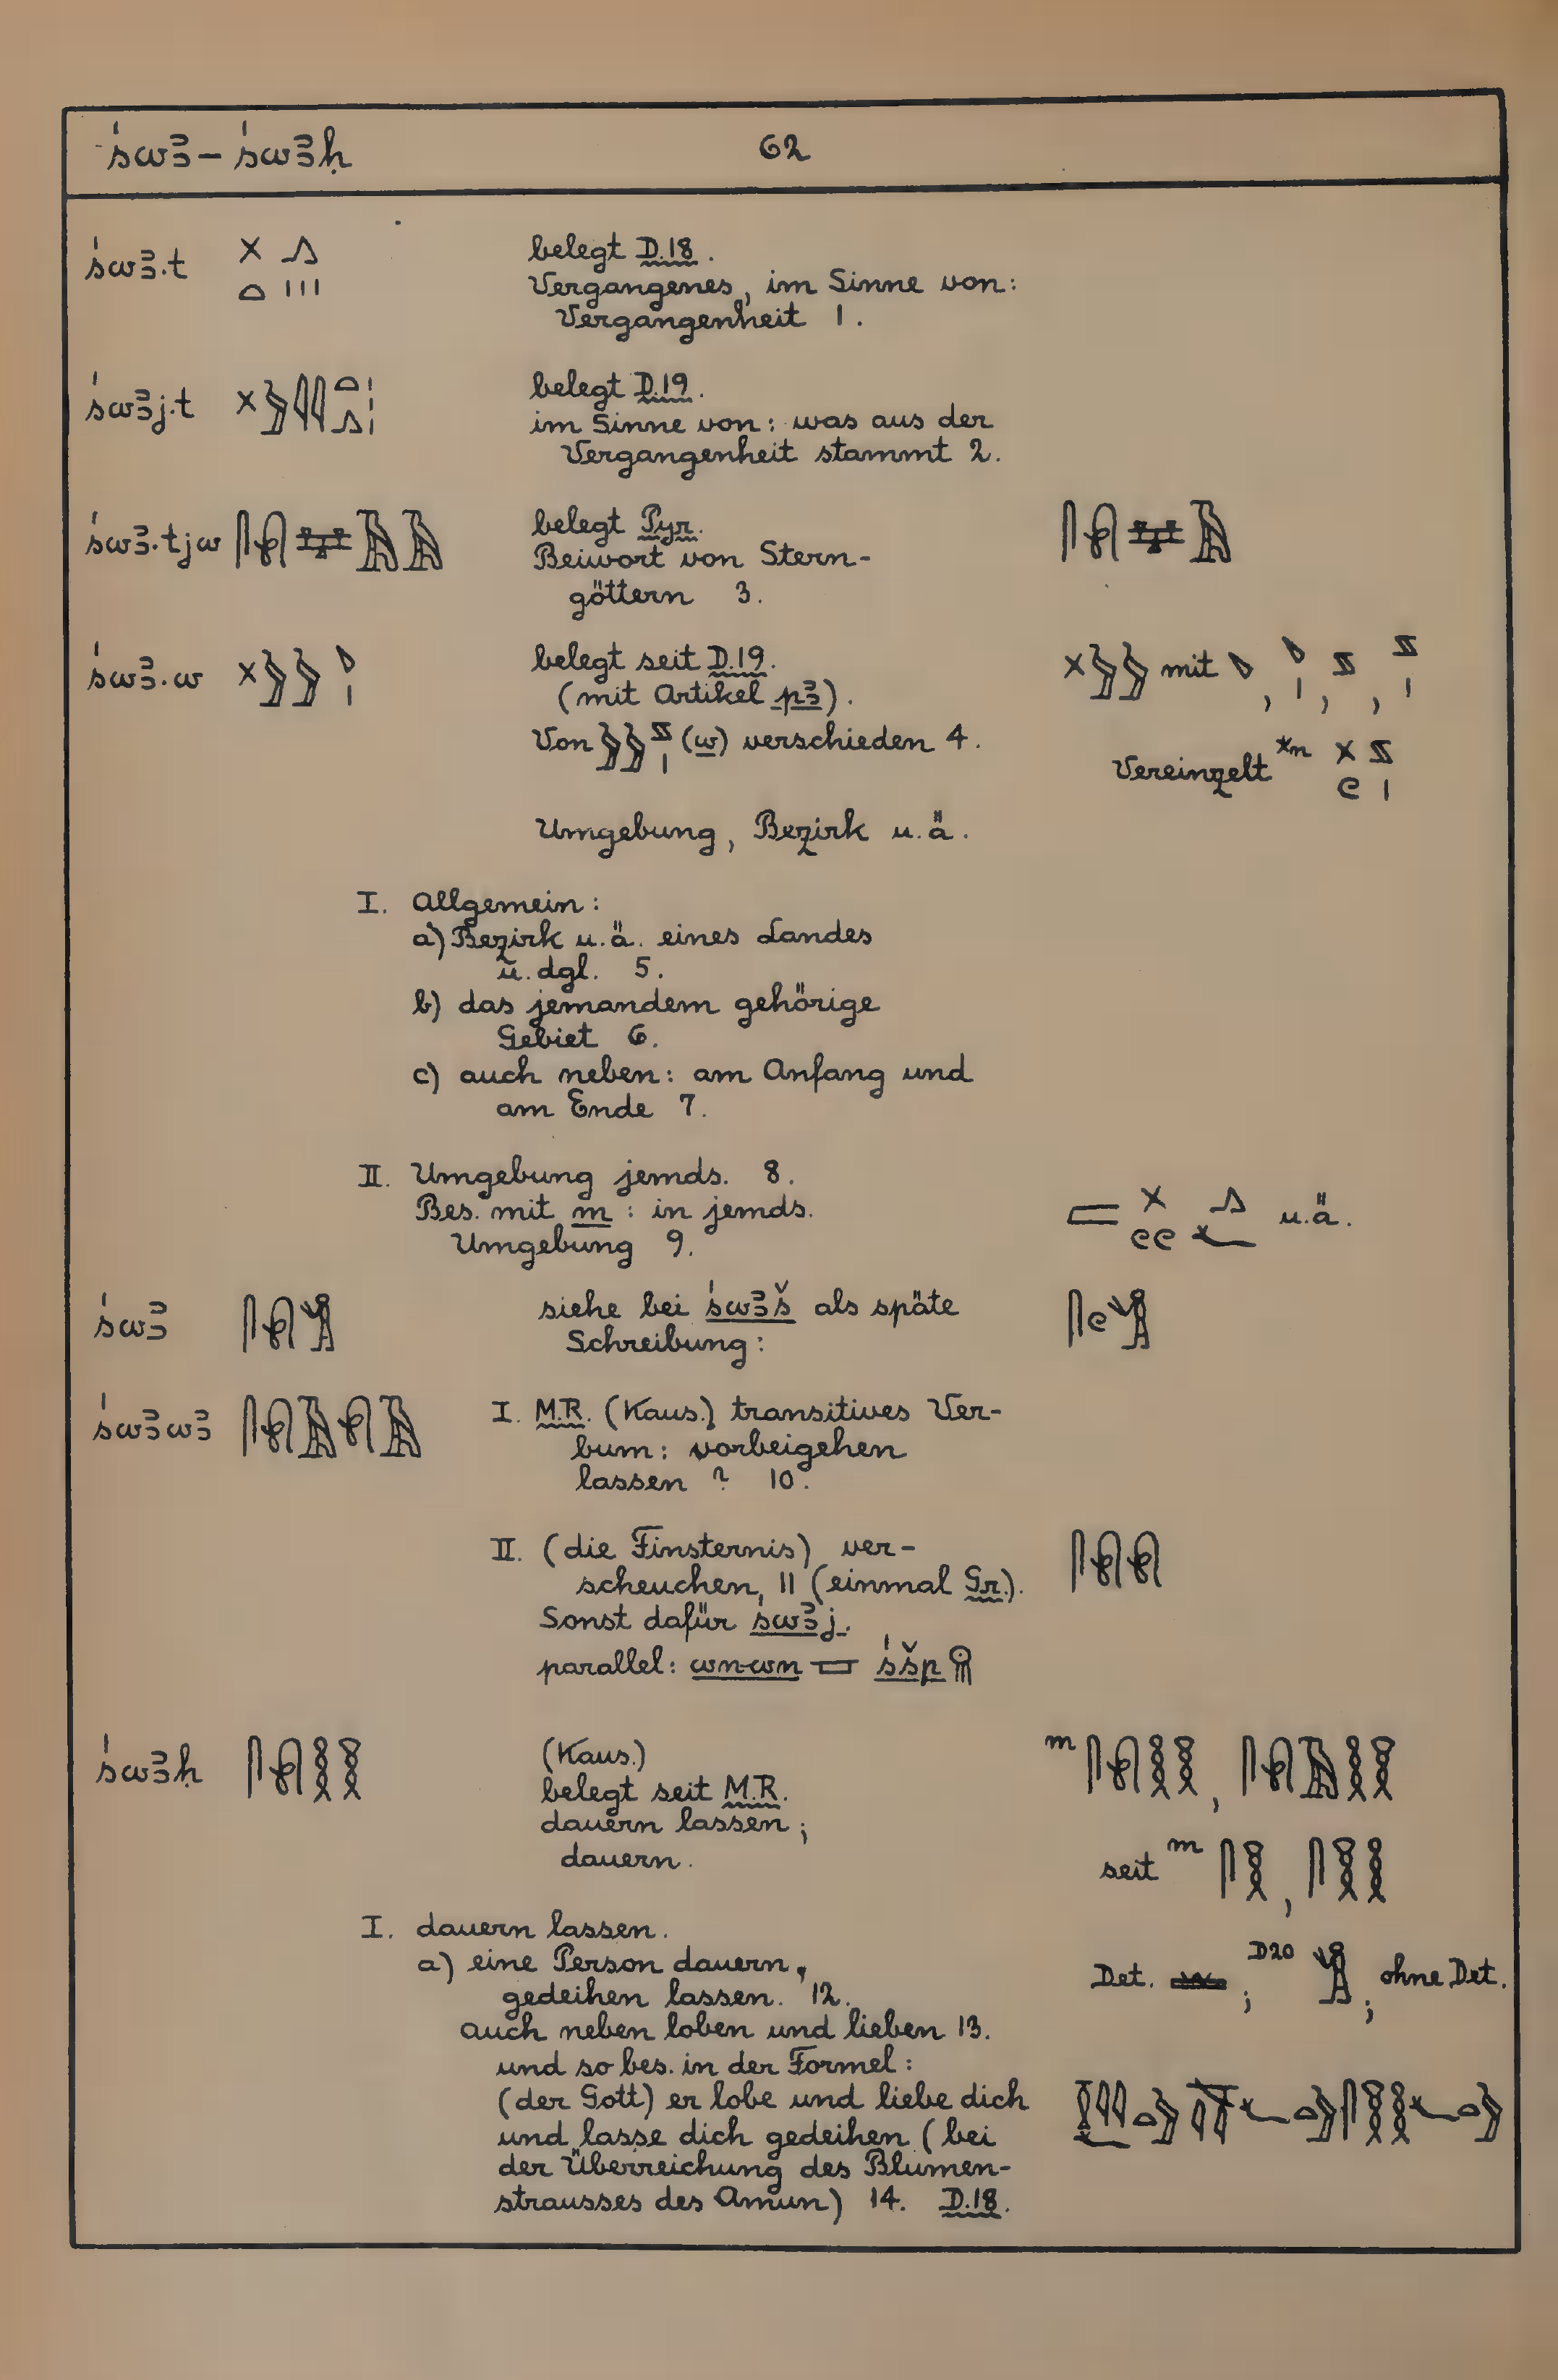 śwꜣ – śwꜣḥ 62
śwꜣ.t belegt D.18.
Vergangenes, im Sinne von:
Vergangenheit 1.
śwꜣj.t belegt D.19.
im Sinne von: was aus der
Vergangenheit stammt 2.
śwꜣ.tjw belegt Pyr.
Beiwort von Stern-
göttern 3.
śwꜣ.w belegt seit D.19. mit
(mit Artikel pꜣ).
Von (w) verschieden 4.
Vereinzelt *n
Umgebung, Bezirk u.ä.
I. Allgemein:
a) Bezirk u.ä. eines Landes
u.dgl. 5.
b) das jemandem gehörige
Gebiet 6.
c) auch neben: am Anfang und
am Ende 7.
II. Umgebung jemds. 8.
Bes. mit m : in jemds. u.ä.
Umgebung 9.
śwꜣ siehe bei śwꜣš als späte
Schreibung:
śwꜣwꜣ I. M.R. (Kaus.) transitives Ver-
bum: vorbeigehen
lassen ? 10.
II. (die Finsternis) ver-
scheuchen, 11 (einmal Gr.).
Sonst dafür śwꜣj.
parallel: wn-wn śšp
śwꜣḥ (Kaus.) m
belegt seit M.R.
dauern lassen;
dauern. seit m
I. dauern lassen.
a) eine Person dauern, Det. ; D20 ; ohne Det.
gedeihen lassen. 12.
auch neben loben und lieben 13.
und so bes. in der Formel:
(der Gott) er lobe und liebe dich
und lasse dich gedeihen (bei
der Überreichung des Blumen-
strausses des Amun) 14. D.18.